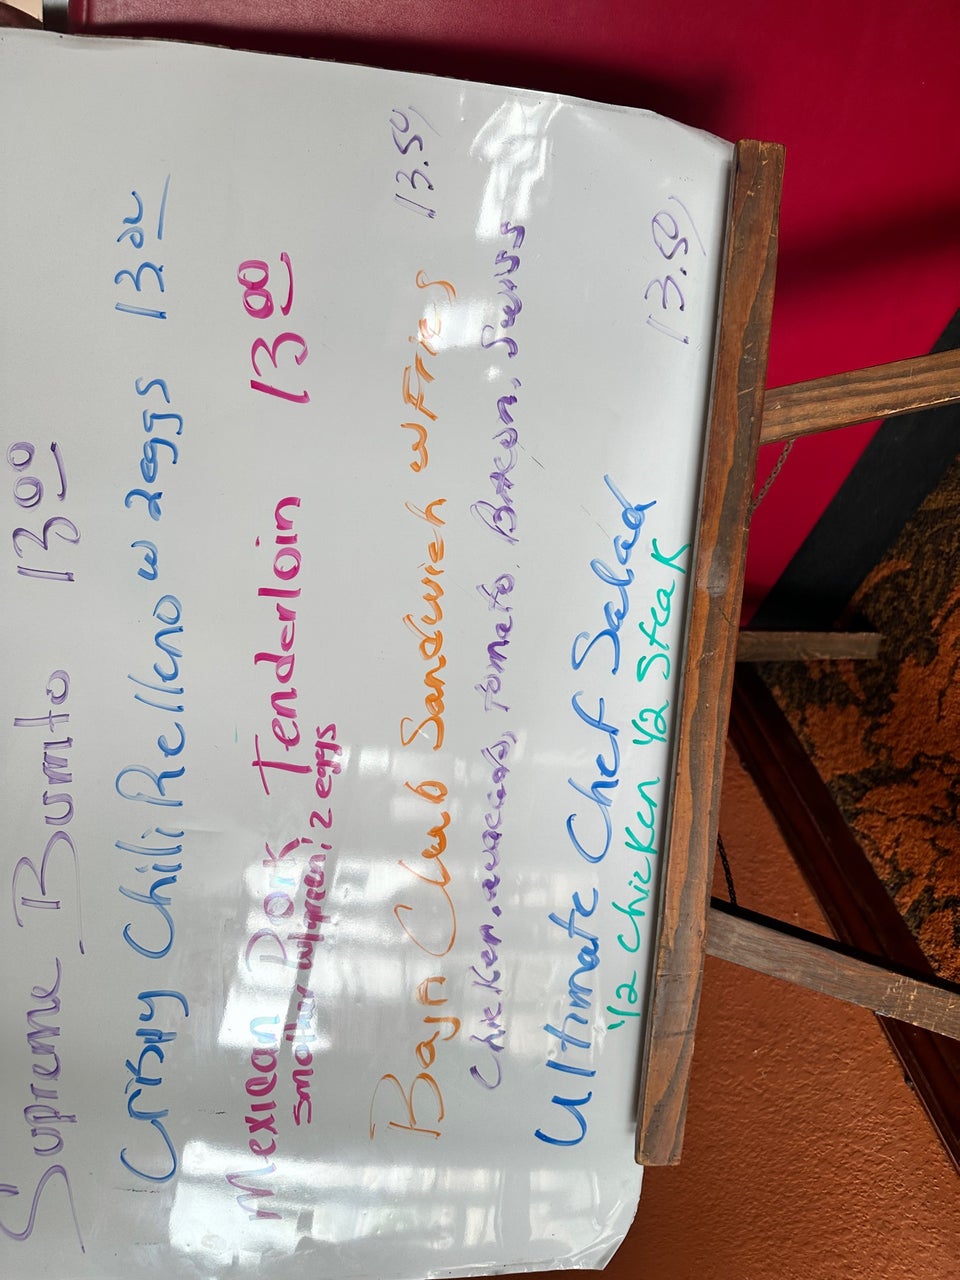 Supreme Burrito 13.00
Crispy Chili Relleno w 2 eggs 13.00
Mexican Pork Tenderloin 13.00
smother w/green, 2 eggs
Baja Club Sandwich w Fries 13.50
Chicken, avacado, tomato, Bacon, Swiss
Ultimate Chef Salad 13.50
1/2 chicken 1/2 Steak